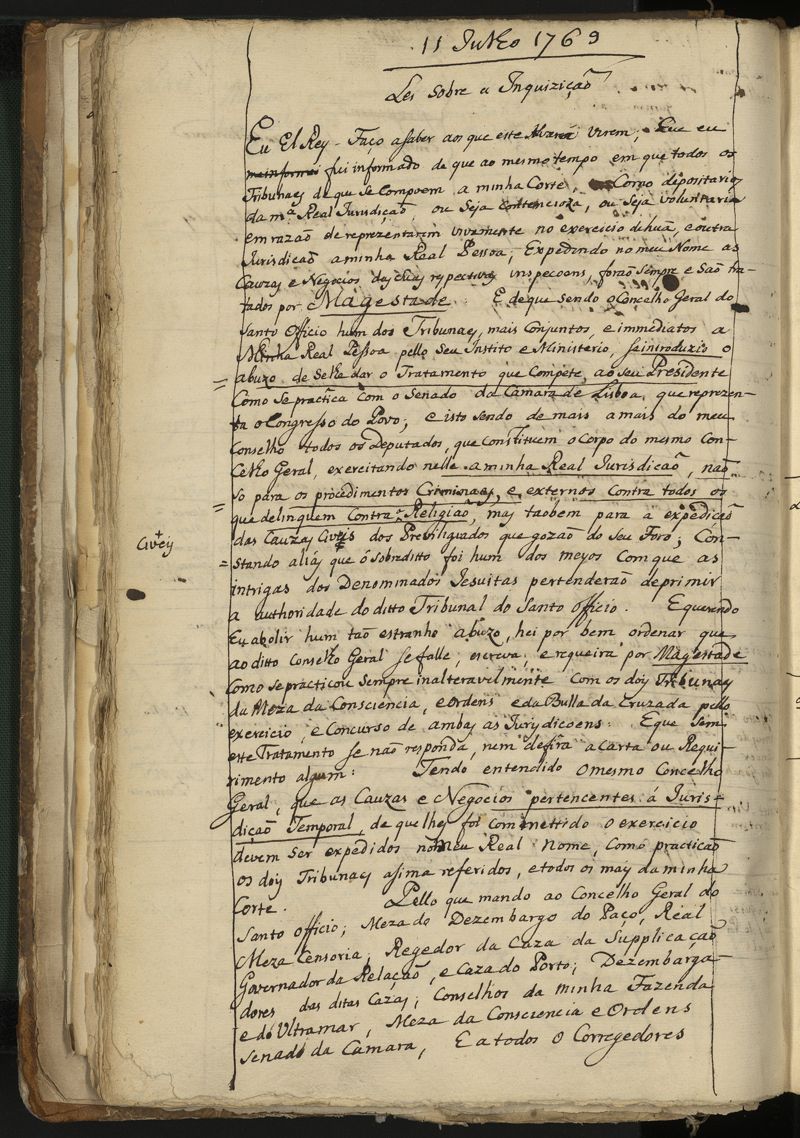 11 Julho 1769
Ley sobre a Inquizição
Eu El Rey - Faço asaber aos que este Alvará virem; Que eu
fui informado de que ao mesmo tempo em que todos os
Tribunaes de que se Compoem a minha Corte, Corpo depositario
da mª Real Jurisdição, ou Seja Contencioza, ou Seja voluntaria
em razão de reprezentarem vivamente no exercicio de huã, e outra
Jurisdicaõ a minha Real Pessoa; Expedindo no meu Nome as
Cauzas e Negocios das suas respectivas inspecoens, foraõ Sempre e Saõ tra-
tados por Magestade. E de que sendo o Concelho Geral do
Santo Officio hum dos Tribunaes, mais Conjuntos, e immediatos a
Minha Real Pessoa pello Seu Instito e Ministerio, seintroduzio o
abuzo de Selhe dar o Tratamento que Compete, ao seu Presidente
Como Se practîca com o Senado da Camara de Lisboa, que reprezen-
ta o Congresso do Povo; e isto sendo de mais a mais do meu
Conselho todos os Deputados, que Constituem o Corpo do mesmo Con-
Celho Geral, exercitando nelle a minha Real Jurisdicaõ, naõ
só para os procedimentos Criminaes, e externos Contra todos os
que delinquem Contra a Religiaõ, mas taõbem para a expediçaõ
das Cauzas Civeis dos Previliguados que gozaõ do Seu Foro; Con-
Civeys
stando aliás que ó Sobreditto foi hum dos meyos Com que as
intrigas dos Denominados Jesuitas pertenderaõ deprimir
a authoridade do ditto Tribunal do Santo officio. E querendo
Eu abolir hum taõ estranho abuzo, hei por bem ordenar que
ao ditto Conselho Geral se falle, escreva, e requeira por Magestade
Como se practicou Sempre inalteravelmente Com os dois Tribunaes
da Meza da Consciencia, e Ordens e da Bulla da Cruzada pello
exercicio, e Concurso de ambas as Jurysdicoens: E que Sem
este Tratamento se naõ responda, nem defira a Carta ou Requi-
rimento algum: Tendo entendido o mesmo Concelho
Geral, que as Cauzas e Negocios pertencentes á Juris-
diçaõ Temporal, de que lhe foi Commettido o exercicio
devem Ser expedidos no Meu Real Nome, Como practicaõ
os dois Tribunaes asima referidos, e todos os mais da minha
Corte. Pello que mando ao Concelho Geral do
Santo officio; Meza do Dezembargo do Paço, Real
Meza Censoria, Regedor da Caza da Supplicaçaõ
Governador da Relaçaõ, e Caza do Porto; Dezembarga-
dores das ditas Cazas; Conselhos da minha Fazenda
e do Ultramar, Meza da Consciencia e Ordens
Senado da Camara, E a todos o Corregedores